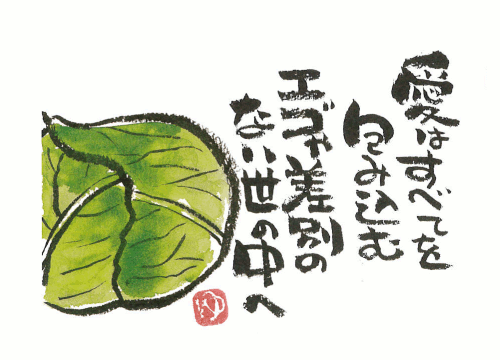 愛はすべてを
包み込む
エゴや差別の
ない世の中へ
ゆ